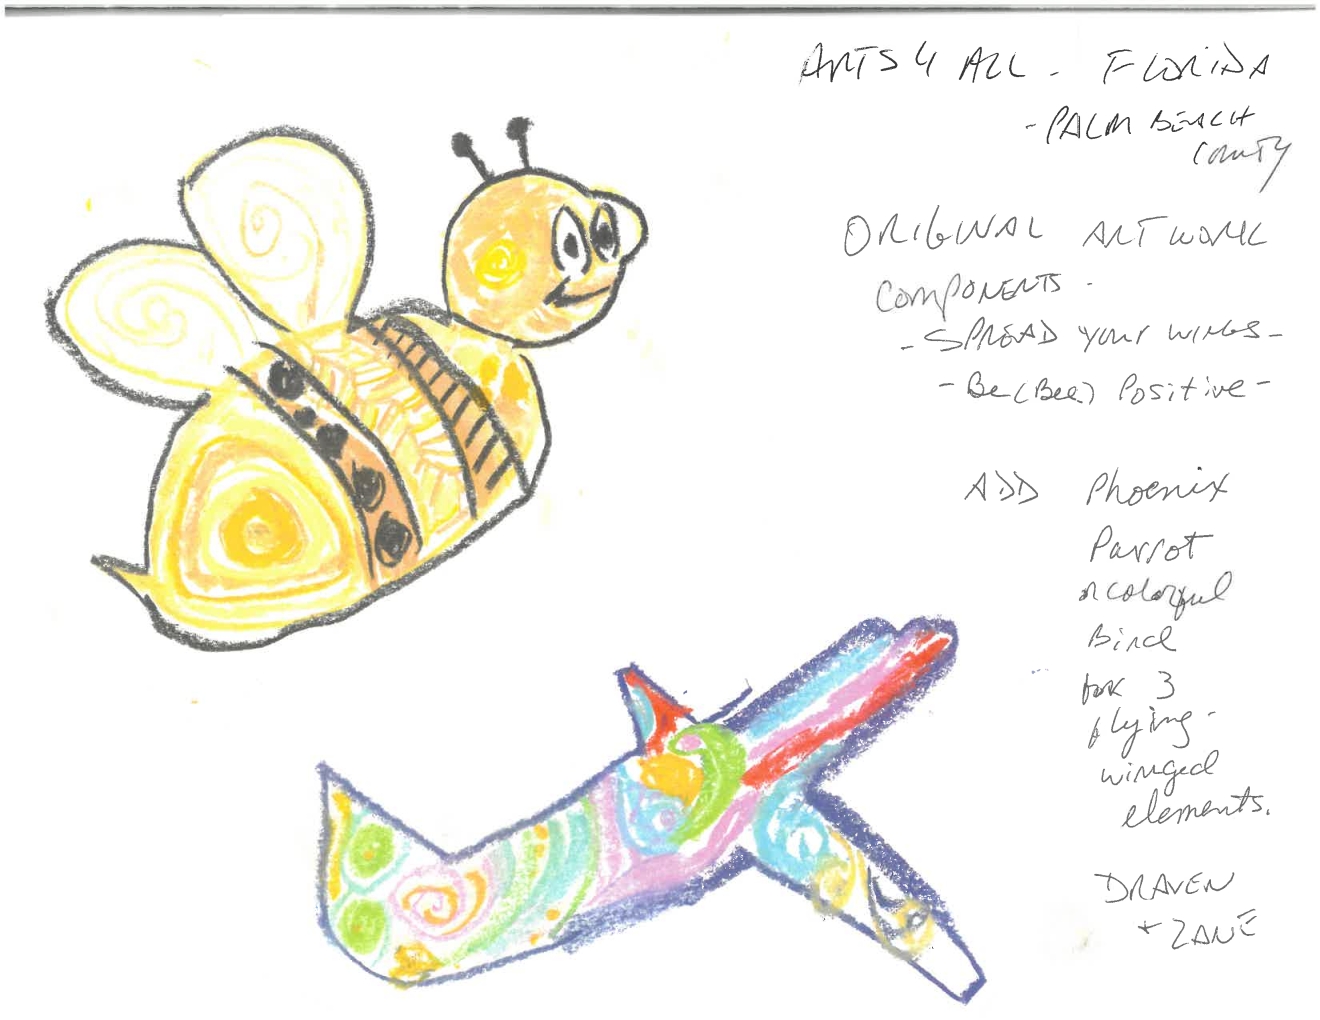 ARTS 4 ALL - FLORIDA
- PALM BEACH
COUNTY
ORIGINAL ARTWORK
COMPONENTS -
- SPREAD YOUR WINGS -
- Be (Bee) Positive -
ADD Phoenix
Parrot
or colorful
Bird
for 3
flying -
winged
elements.
DRAVEN
+ ZANE